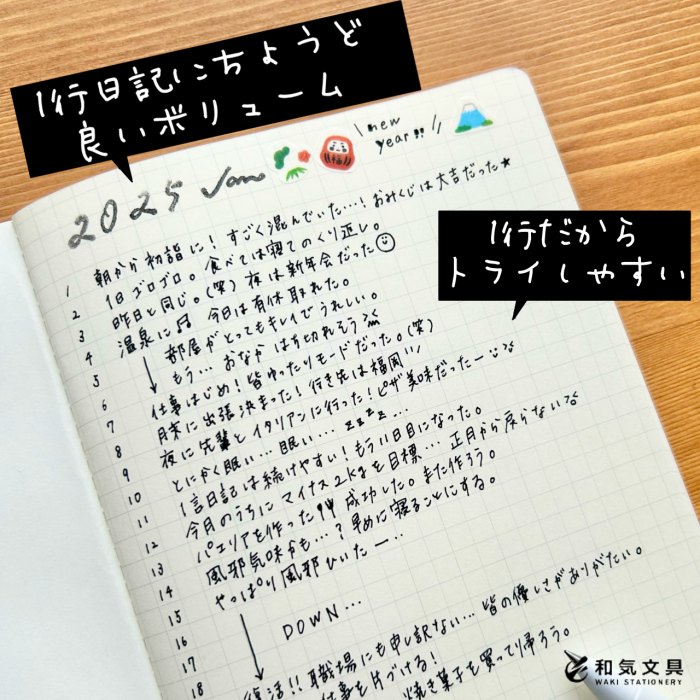 1行日記にちょうど
良いボリューム
new
year!!
2025 Jan
1行だから
トライしやすい
1 朝から初詣に！すごく混んでいた…！おみくじは大吉だった★
2 1日ゴロゴロ。食べては寝てのくり返し。
3 昨日と同じ。(笑) 夜は新年会だった
4 温泉に♫ 今日は有休取れた。
5 部屋がとってもキレイでうれしい。
6 もう…おなかはち切れそう
7 仕事はじめ！皆ゆったりモードだった。(笑)
8 月末に出張決まった！行き先は福岡
9 夜に先輩とイタリアンに行った！ピザ美味だったー
10 とにかく眠い…眠い…zzzz…
11 1言日記は続けやすい！もう11日目になった。
12 今月のうちにマイナス2kgを目標…正月から戻らない
13 パエリアを作った 成功した。また作ろう。
14 風邪気味かも…？早めに寝ることにする。
15 やっぱり風邪ひいたー…
16
17 DOWN...
18 復活！！職場にも申し訳ない…皆の優しさがありがたい。
仕事を片づける！
焼き菓子を買って帰ろう。
和気文具
WAKI STATIONERY